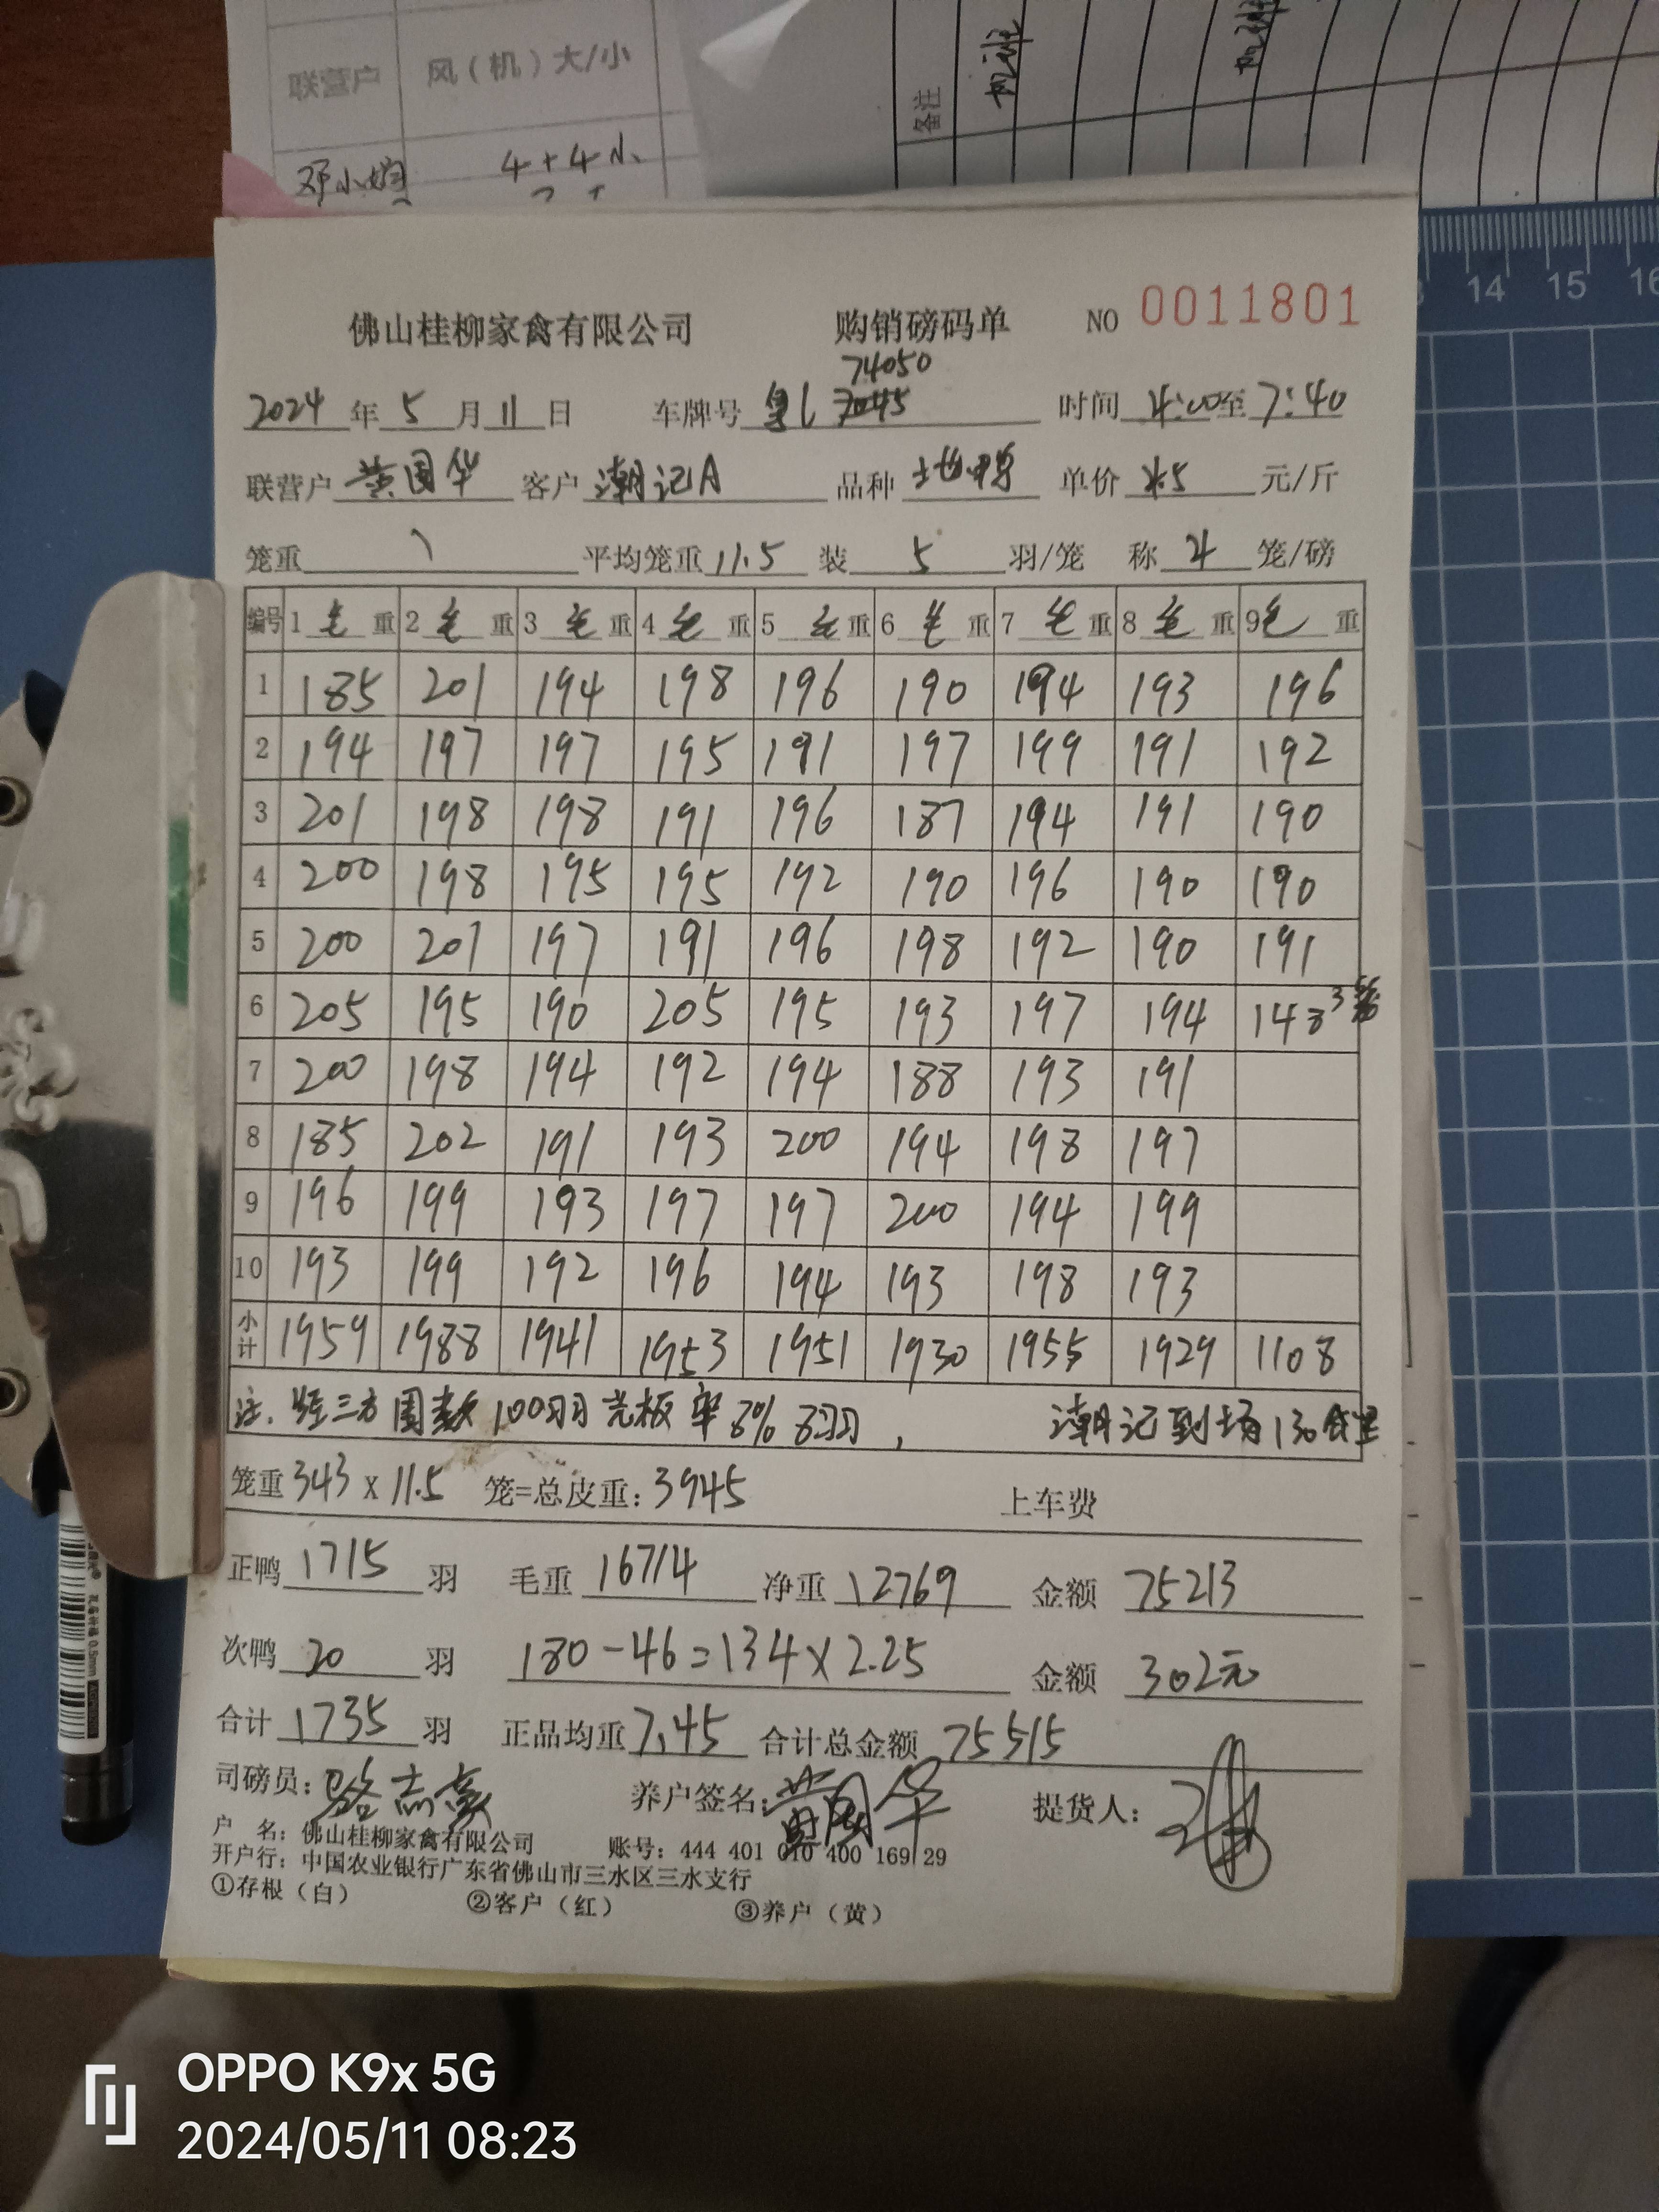 联营户 风（机）大/小
备注
邓小 4+4小
14 15 16
佛山桂柳家禽有限公司 购销磅码单 NO 0011801
74050
2024年5月11日 车牌号 7045 时间 4:00至7:40
联营户 黄国华 客户 潮记A 品种 单价 元/斤
笼重 平均笼重11.5 装5羽/笼 称4笼/磅
编号 1毛重 2毛重 3毛重 4毛重 5毛重 6毛重 7毛重 8毛重 9毛重
1 185 201 194 198 196 190 194 193 196
2 194 197 197 195 191 197 199 191 192
3 201 198 198 191 196 187 194 191 190
4 200 198 195 195 192 190 196 190 190
5 200 201 197 191 196 198 192 190 191
6 205 195 190 205 195 193 197 194 148 3
7 200 198 194 192 194 188 193 191
8 185 202 191 193 200 194 198 197
9 196 199 193 197 197 200 194 199
10 193 199 192 196 194 193 198 193
小计 1959 1988 1941 1953 1951 1930 1955 1929 1108
注. 三方 100羽 光板率8% 8羽, 潮记到场130公里
笼重343x11.5 笼=总皮重:3945 上车费
正鸭1715羽 毛重16714 净重12769 金额75213
次鸭20羽 180-46=134x2.25 金额302元
合计1735羽 正品均重7.45 合计总金额75515
司磅员:骆志豪 养户签名:黄国华 提货人:
户 名：佛山桂柳家禽有限公司 账号：444 401 010 400 169 29
开户行：中国农业银行广东省佛山市三水区三水支行
①存根（白） ②客户（红） ③养户（黄）
OPPO K9x 5G
2024/05/11 08:23